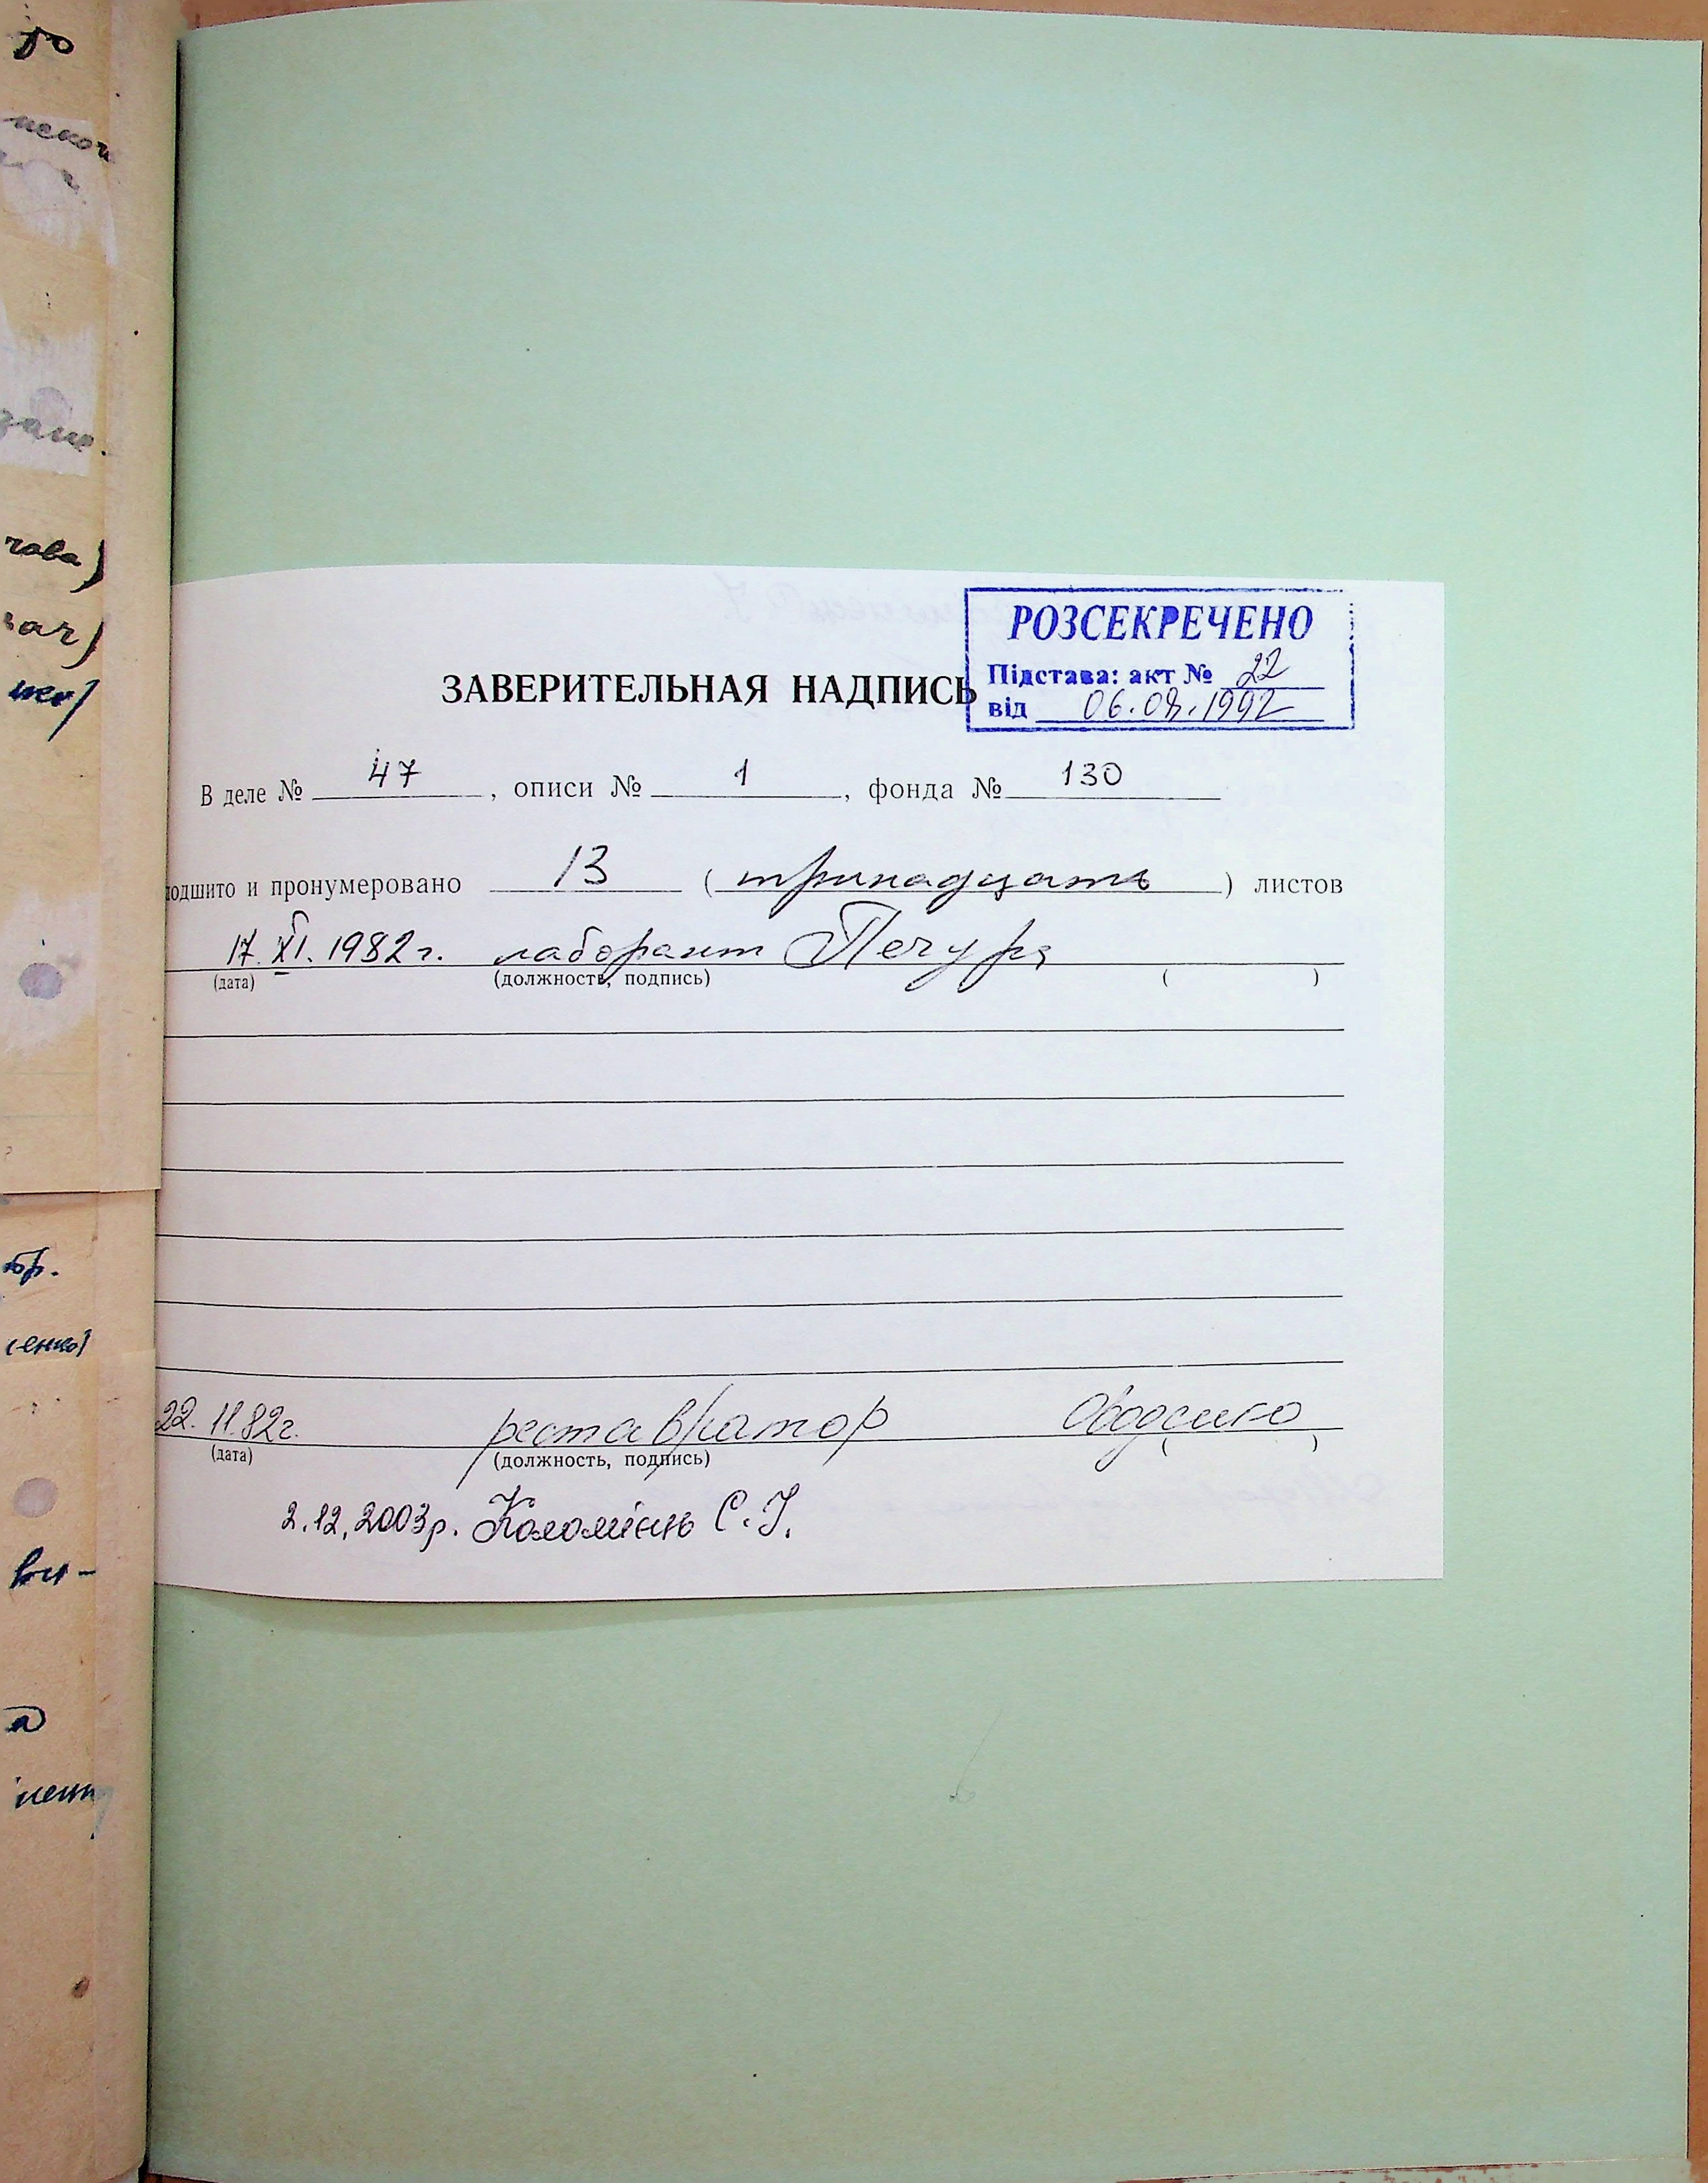 РОЗСЕКРЕЧЕНО
Підстава: акт № 22
від 06.08.1992
ЗАВЕРИТЕЛЬНАЯ НАДПИСЬ
В деле № 47, описи № 1, фонда № 130
подшито и пронумеровано 13 (тринадцать) листов
17.XI.1982г. лаборант Печура
(дата) (должность, подпись) ( )
22.11.82г. реставратор
(дата) (должность, подпись) ( )
2.12.2003р. Коломієць С.І.